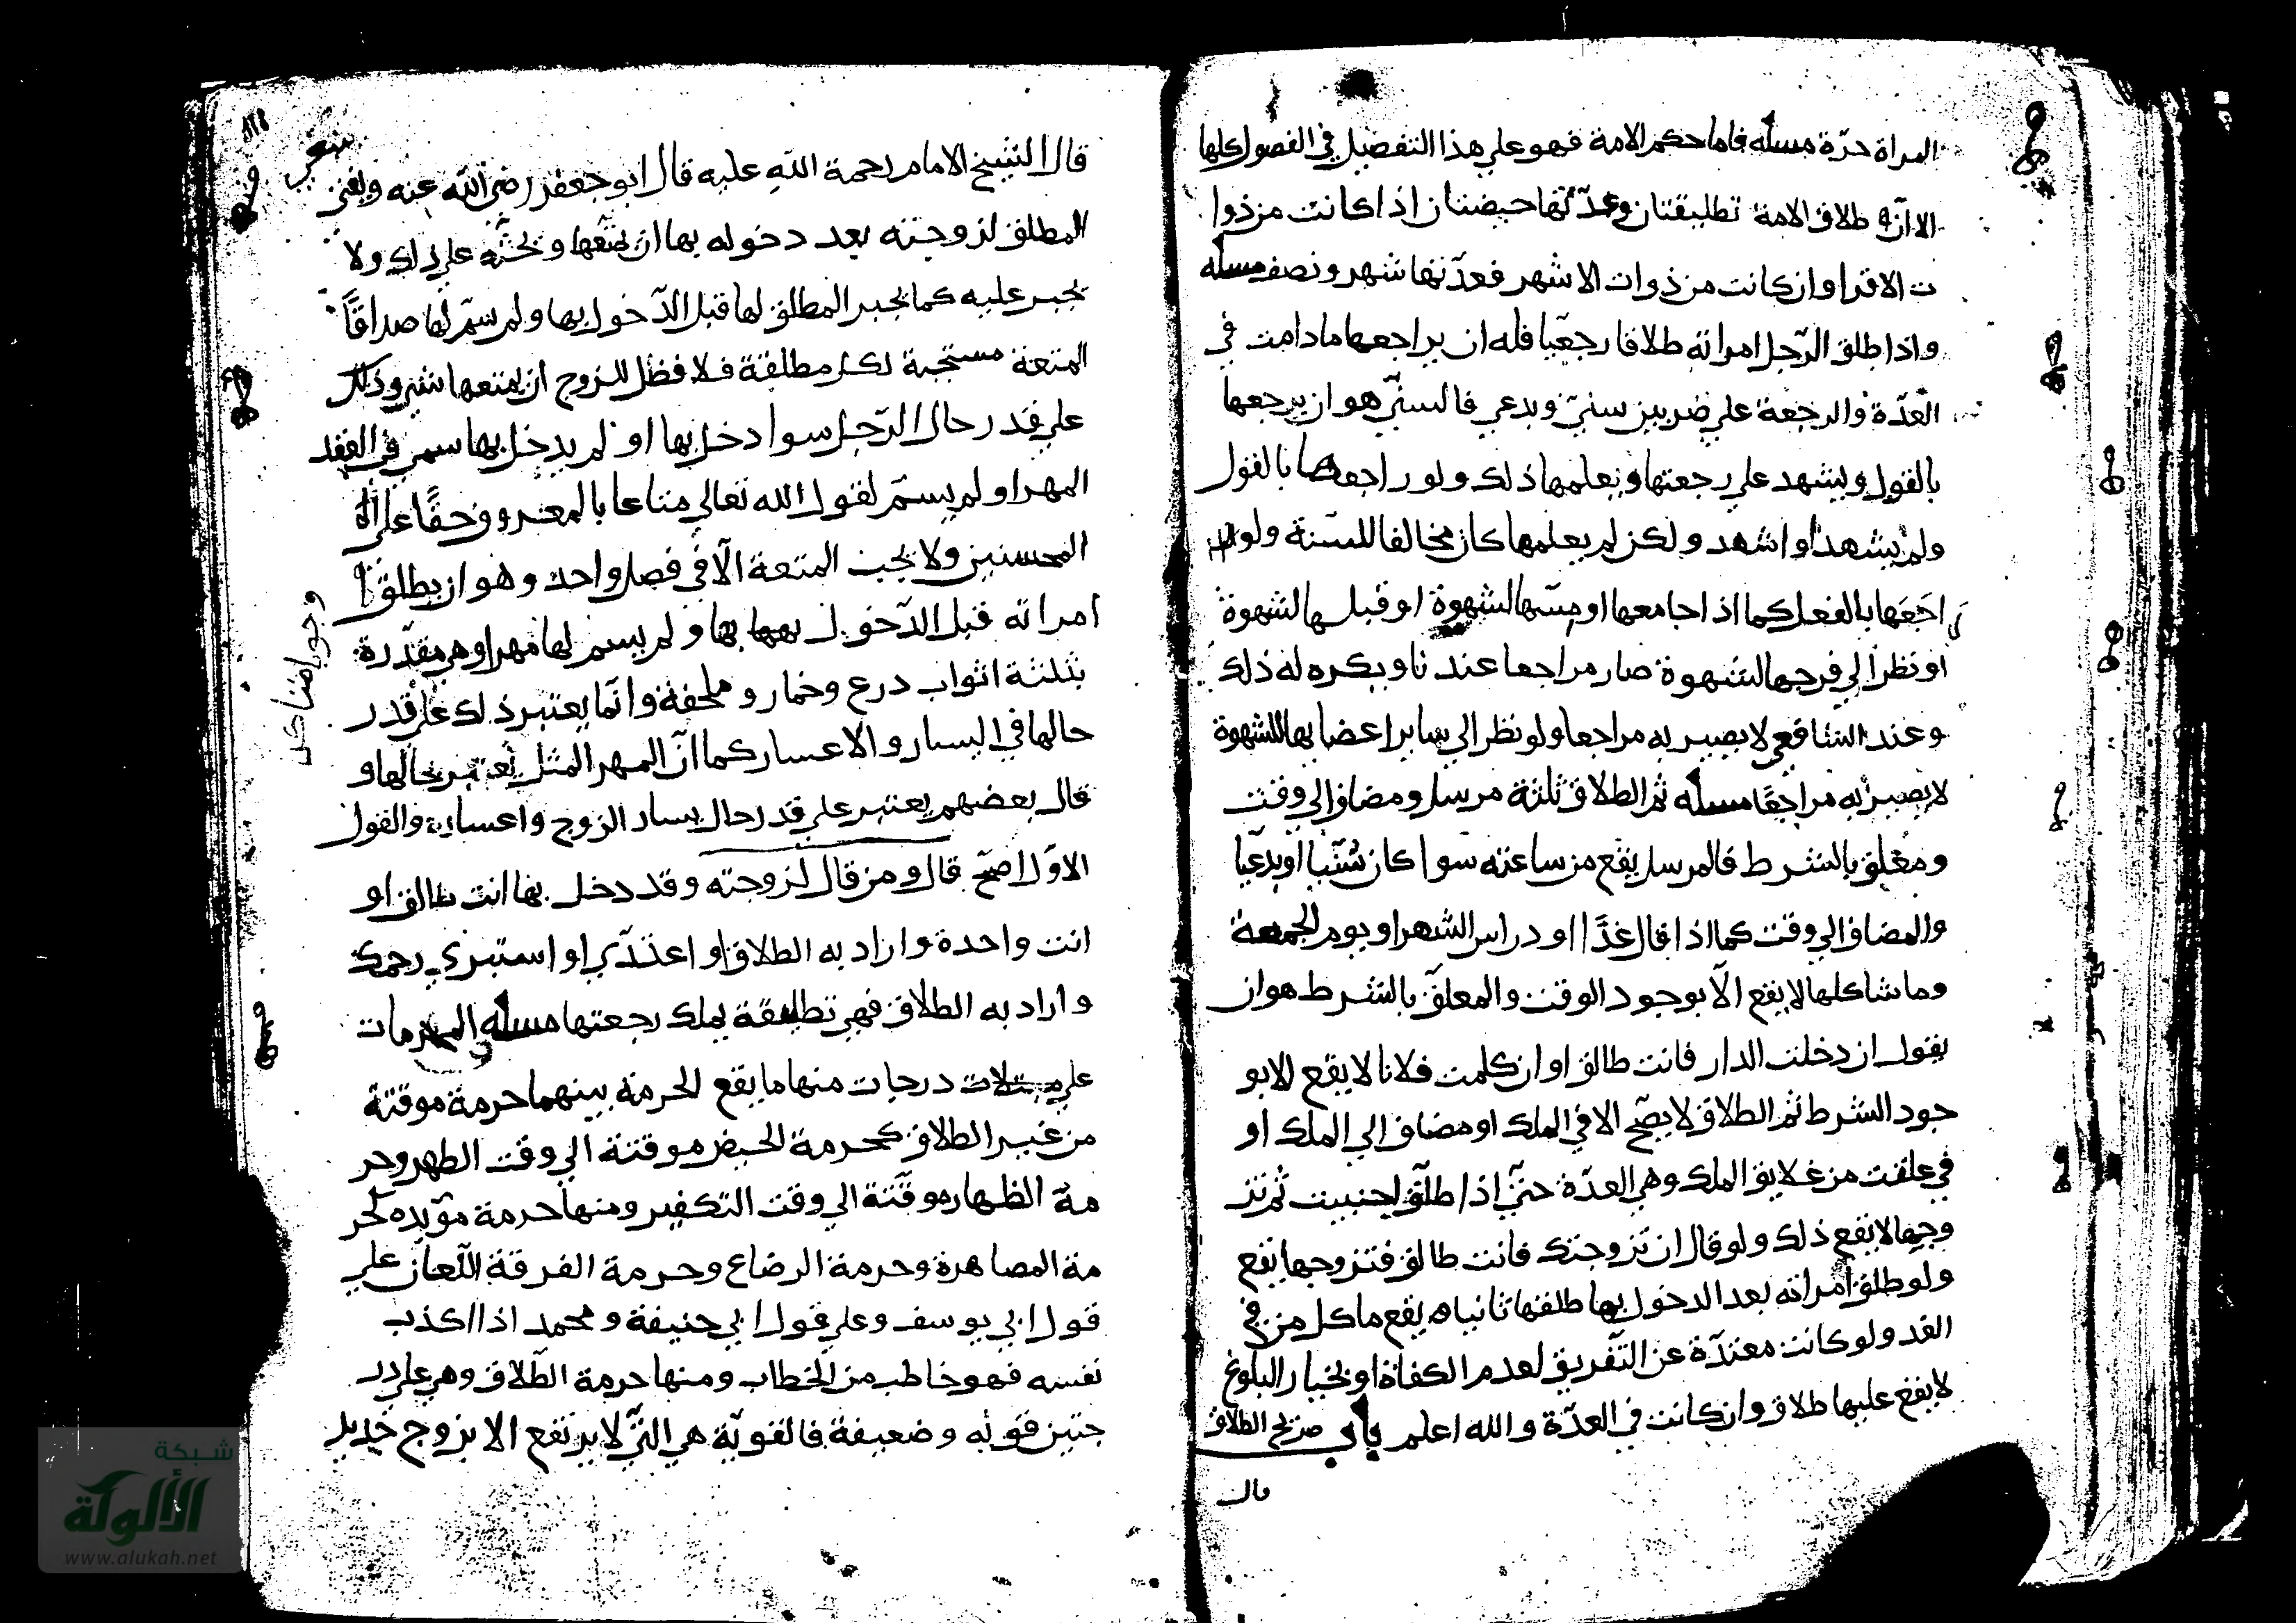 المراة حرّة مسله فاما حكم الامة فهو علي هذا التفصيل في الفصول كلها
الا انّه طلاق الامة تطليقتان وعدّتها حيضتان اذا كانت من ذوا
ت الاقرا وان كانت من ذوات الاشهر فعدّتها شهر ونصف مسله
واذا طلق الرّجل امراته طلاقا رجعيّا فله ان يراجعها مادامت في
العدّة والرجعة علي ضربين سنيّ وبدعي فالسنيّ هو ان يرجعها
بالقول ويشهد علي رجعتها ويعلمها ذلك ولو راجعها بالقول
ولم يشهد او اشهد ولكن لم يعلمها كان مخالفا للسنة ولو
راجعها بالفعل كما اذا جامعها او مسّها لشهوة او قبلها لشهوة
او نظر الي فرجها لشهوة صار مراجعا عندنا ويكره له ذلك
وعند الشافعي لا يصير به مراجعا ولو نظر الي سايراعضايها للشهوة
لا يصير به مراجعًا مسله ثم الطلاق ثلثة مرسل ومضاف الي وقت
ومعلق بالشرط فالمرسل يقع من ساعته سوا كان سُنّيا او بدعيا
والمضاف الي وقت كما اذا قال غدًا او راس الشهر او يوم الجمعة
وما شاكلها لا يقع الّا بوجود الوقت والمعلّق بالشرط هو ان
يقول ان دخلت الدار فانت طالق او ان كلمت فلانا لا يقع الا بو
جود الشرط ثم الطلاق لا يصّح الا في الملك او مضاف الي الملك او
في علقت من غلايق الملك وهي العدّة حتيّ اذا طلّق اجنبيت ثم تز
وجها لا يقع ذلك ولو قال ان تزوجتك فانت طالق فتزوجها يقع
ولو طلق امراته بعد الدخول بها طلقها ثانيا يقع ما كل من في
العد ولو كانت معتدّة عن التّفريق لعدم الكفاة او لخيار البلوغ
لا يقع عليها طلاق وان كانت في العدّة والله اعلم باب صريح الطلاق
قال
قال الشيخ الامام رحمة اللهِ عليه قال ابو جعفر رضي الله عنه وينبغي
المطلق لزوجته بعد دخوله بها ان يمتّعها ويحثّه علي ذلك ولا
يجبر عليه كما يجبر المطلق لها قبل الدّخول بها ولم يسمّ لها صداقًا
المتعة مستحبة لكل مطلقة فلافظل للزوج ان يمتعها شي وذلك
علي قدر حال الرّجل سوا دخل بها او لم يدخل بها سمي في العقد
المهر او لم يسمّ لقول الله تعالي متاعا بالمعروف حقًّا علي
المحسنين ولا يجب المتعة الّا في فصل واحد وهو ان يطلق
امراته قبل الدّخول بها ولم يسم لها مهرا وهي مقدّرة
بثلثة اثواب درع وخمار وملحفة وانّما يعتبر ذلك علي قدر
حالها في اليسار والاعسار كما انّ المهر المثل يُعتبر بحالها و
قال بعضهم يعتبر علي قدر حال يسار الزوج واعساره والقول
الاوّل اصحّ قال ومن قال لزوجته وقد دخل بها انت طالق او
انت واحدة واراد به الطلاق او اعتدّي او استبري رحمك
واراد به الطلاق فهي تطليقة يملك رجعتها مسله المحرمات
علي ثلات درجات منها ما يقع الحرمة بينهما حرمة موقتة
من غير الطلاق كحرمة الحيض موقتة الي وقت الطهر وحر
مة الظهار موقّتة الي وقت التكفير ومنها حرمة مؤبده كحر
مة المصاهرة وحرمة الرضاع وحرمة الفرقة اللّعان علي
قول ابي يوسف وعلي قول ابي حنيفة ومحمد اذا اكذب
نفسه فهو خاطب من الخطاب ومنها حرمة الطّلاق وهي علي در
جتين قويّه وضعيفة فالقويّة هي التيّ لا يرتفع الا بزوج جديد
شبكة
الألوكة
www.alukah.net